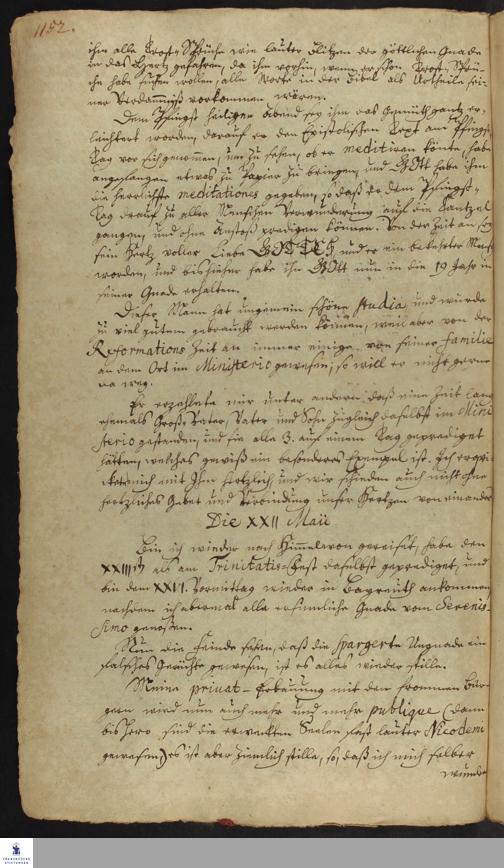 1152.
ihm alle Trost-Sprüche wie lauter Blitzen der göttlichen Gnade
in das Hertz gefahren, da ihm vorhin, wenn er schon Trost-Sprü-
che habe suchen wollen, alle Worte in der Bibel als Urtheile sei-
ner Verdammniß vorkommen wären.
Dem Pfingst heiligen Abend sey ihm das Gemüth gantz er-
leichtert worden, darauf er den Epistolischen Text am Pfingst
Tag vor sich genommen, um zu sehen, ob er meditiren könte, habe
angefangen etwas zu Papier zu bringen, und Gott habe ihm
die herrlichste meditationes gegeben, so daß er dem Pfingst-
Tag drauf zu aller Menschen Verwunderung auf die Cantzel
gangen, und ohne Anstoß predigen können. Von der Zeit an sey
sein Hertz voller Liebe GOTTES und er ein bekehrter Mensch
worden, und bis hieher habe ihn GOtt nun in die 19 Jahr in
seiner Gnade erhalten.
Dieser Mann hat ungemein schöne studia, und würde
zu viel gutem gebraucht werden können, weil aber von der
Reformations Zeit an immer einige von seiner Familie
an dem Ort im Ministerio gewesen, so will er nicht gerne
da weg.
Er erzehlete mir unter andern, daß eine Zeit lang
ehemals Groß-Vater, Vater und Sohn zugleich daselbst im Mini
sterio gestanden, und sie alle 3. auf einem Tag geprediget
hätten, welches gewiß ein besonderes Exempel ist. Ich erqvi-
ckete mich mit Ihm hertzlich, und wir schieden auch nicht ohne
hertzliches Gebet und Verbindung unser Hertzen von einander
Die XXII Maii
Bin ich wieder nach Himmelcron gereiset, habe den
XXIII als am Trinitatis-Fest daselbst geprediget, und
bin den XXVI. Vormittag wieder in Bayreuth ankommen
nachdem ich abermal alle ersinnliche Gnade vom Serenis-
simo genoßen.
Nun die Feinde sehen, daß die spargirte Ungnade ein
falsches Gerüchte gewesen, ist es alles wieder stille.
Meine privat-Erbauung mit den frommen Bür-
gern wird nun auch mehr und mehr publique (dann
bis hero sind die erweckten Seelen fast lauter Nicodemi
gewesen) es ist aber ziemlich stille, so, daß ich mich selber
wunde
FRANCKESCHE
STIFTUNGEN